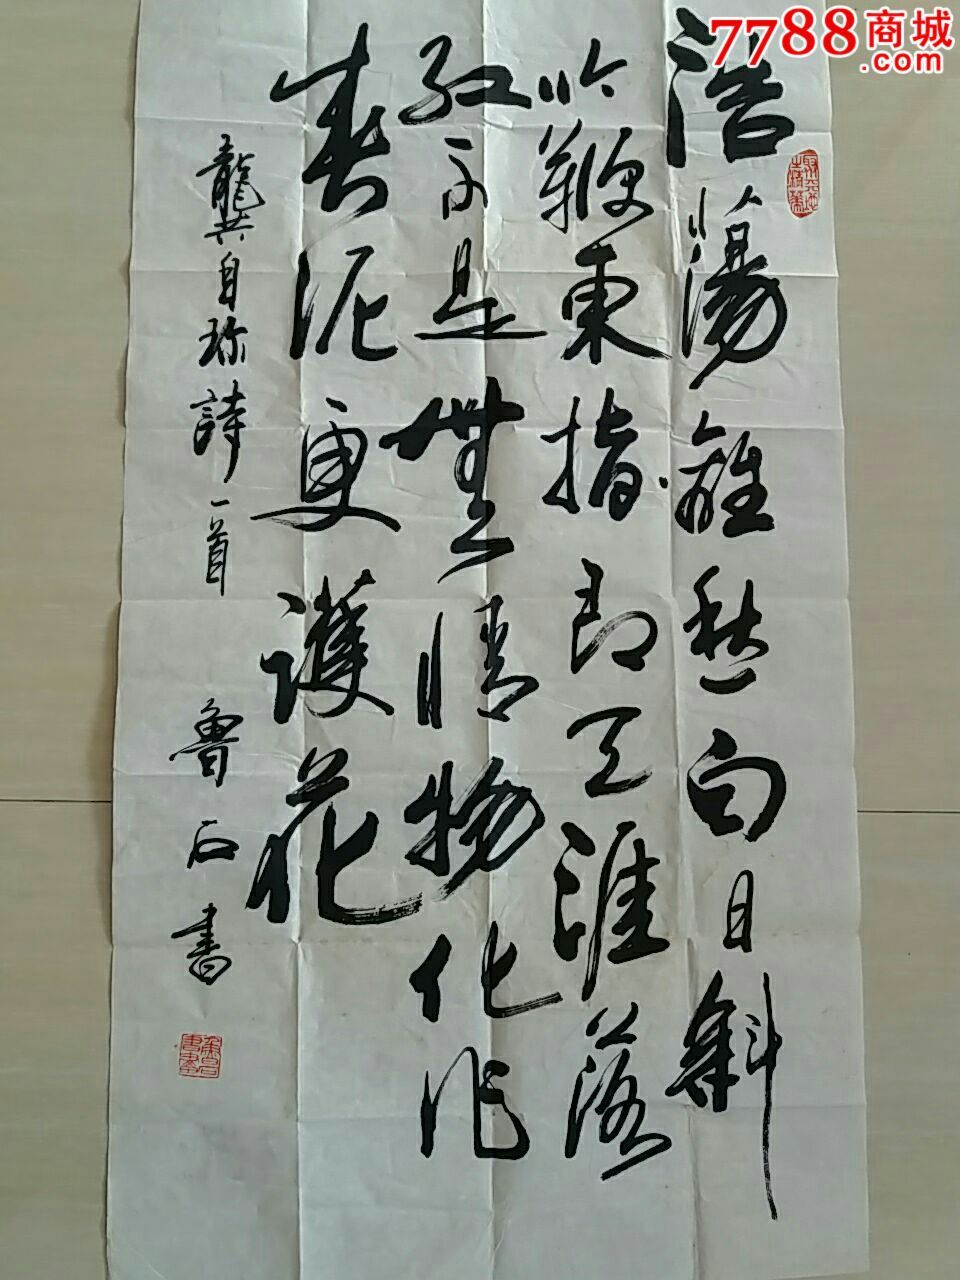 浩蕩離愁白日斜
吟鞭東指即天涯落
紅不是無情物化作
春泥更護花
龔自珍詩一首
魯石書
7788商城
.com